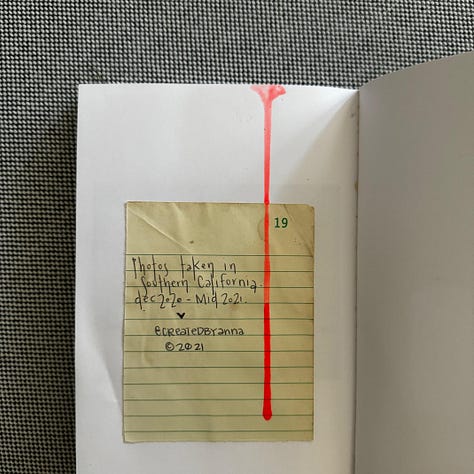 19
Photos taken in
Southern California.
dec 2020 - Mid 2021.
@CReateDBYanna
©2021